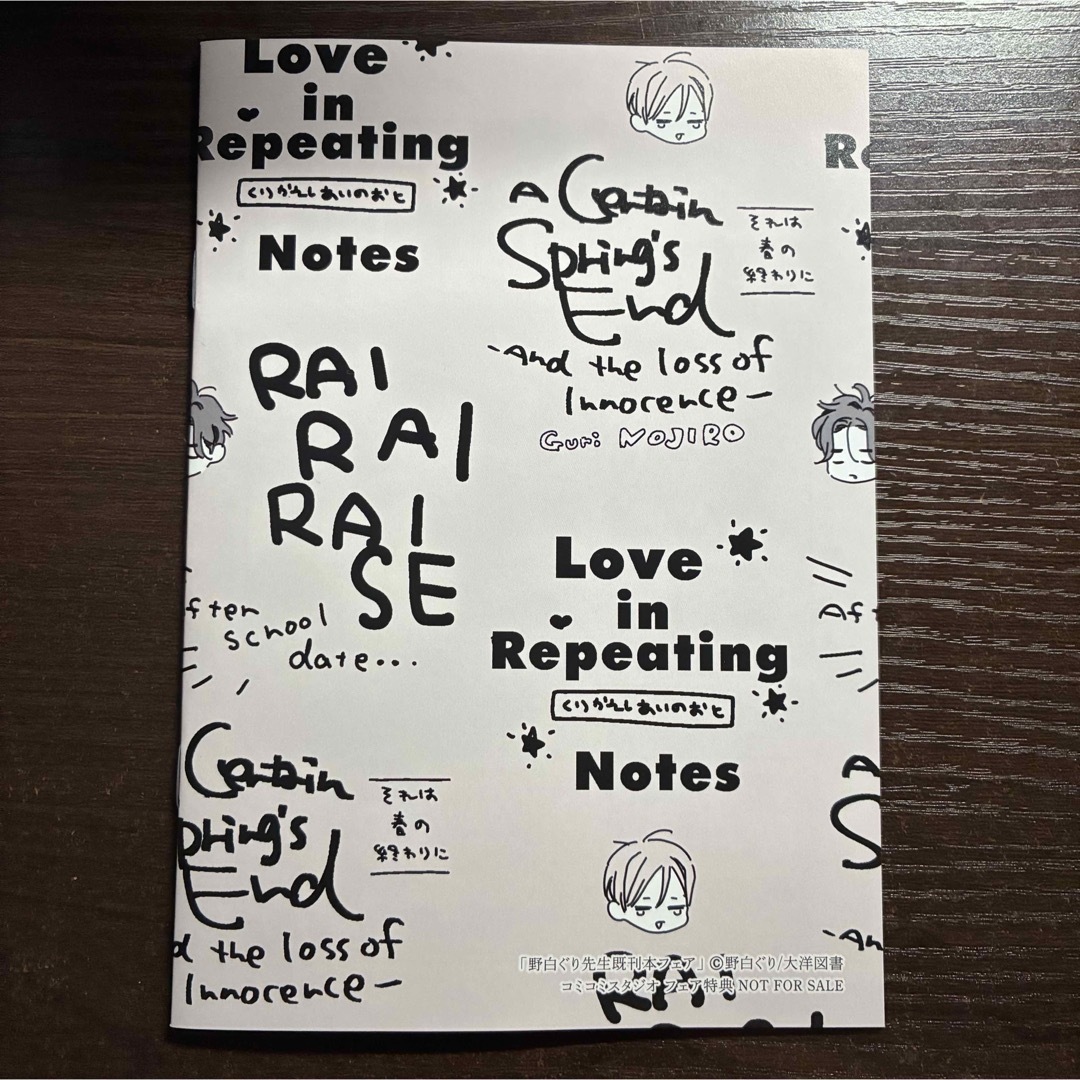 Love
in
Repeating
くりかえしあいのおと
Notes
R
A Certain
Spring's
End
-And the loss of
Innorence-
Guri NOJIRO
それは
春の
終わりに
RAI
RAI
RAI
SE
fter
school
date...
Love
in
Repeating
くりかえしあいのおと
Notes
Af
Certain
pring's
End
d the loss of
Innorence-
それは
春の
終わりに
A
S
-An
RAI
「野白ぐり先生既刊本フェア」©野白ぐり/大洋図書
コミコミスタジオ フェア特典 NOT FOR SALE